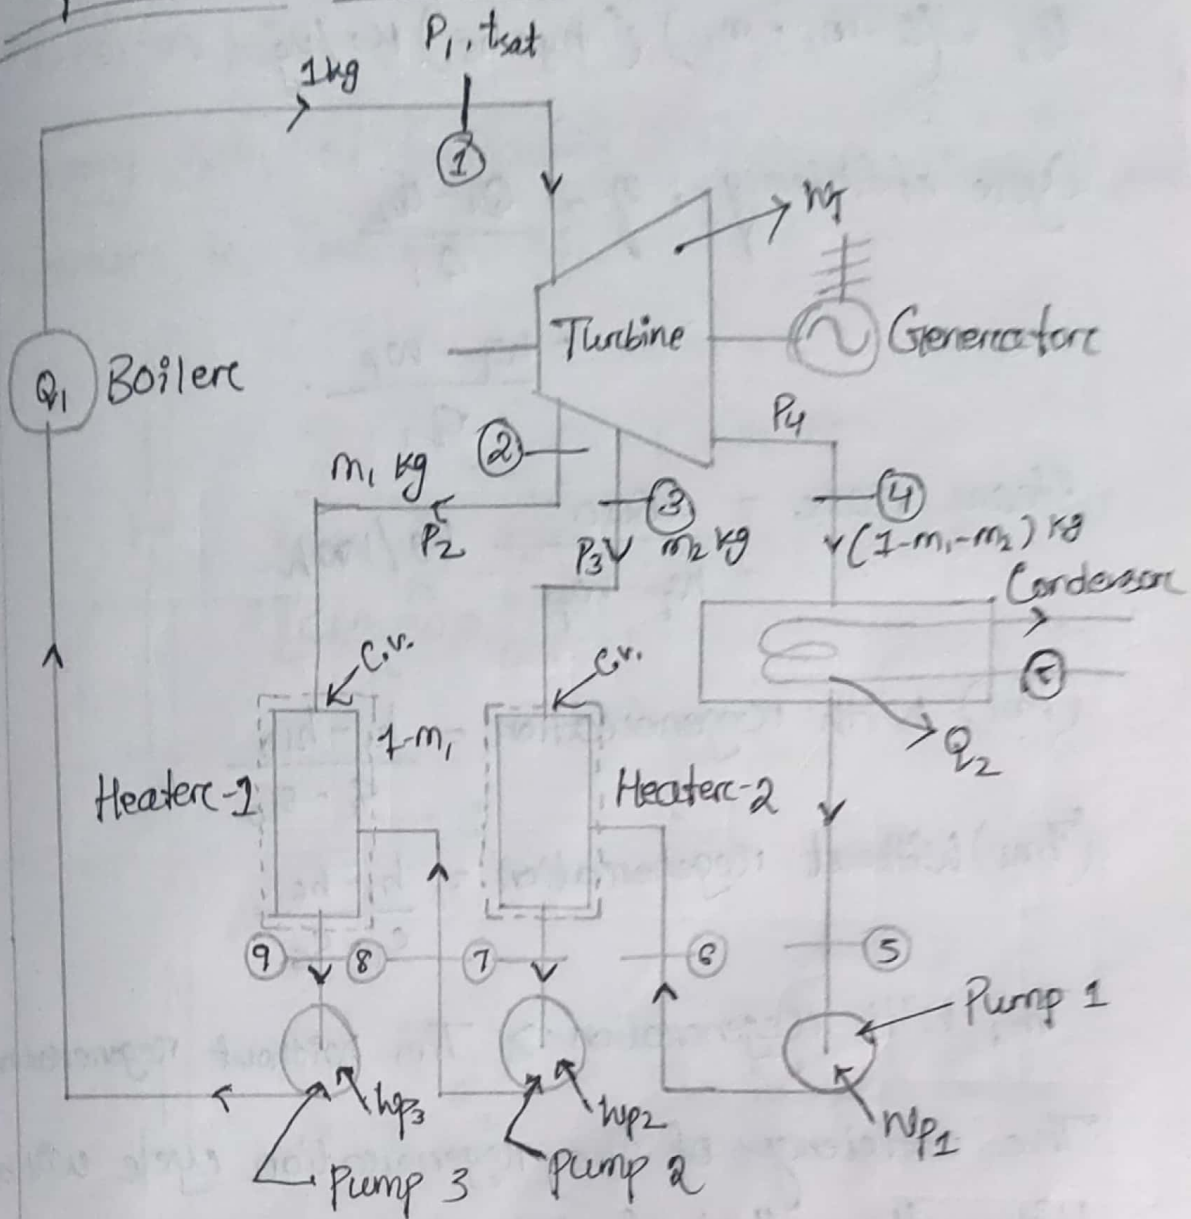 P₁, tsat
1kg
①
WT
Turbine
Generatorc
Q₁ Boilerc
P₄
②
m₁ kg
P₂
③
m₂ kg
P₃
④
(1-m₁-m₂) kg
Condensorc
C.V.
C.V.
1-m₁
Q₂
Heaterc-1
Heaterc-2
⑨ ⑧ ⑦ ⑥ ⑤
Pump 1
Wp₃
Wp₂
Wp₁
Pump 3
Pump 2